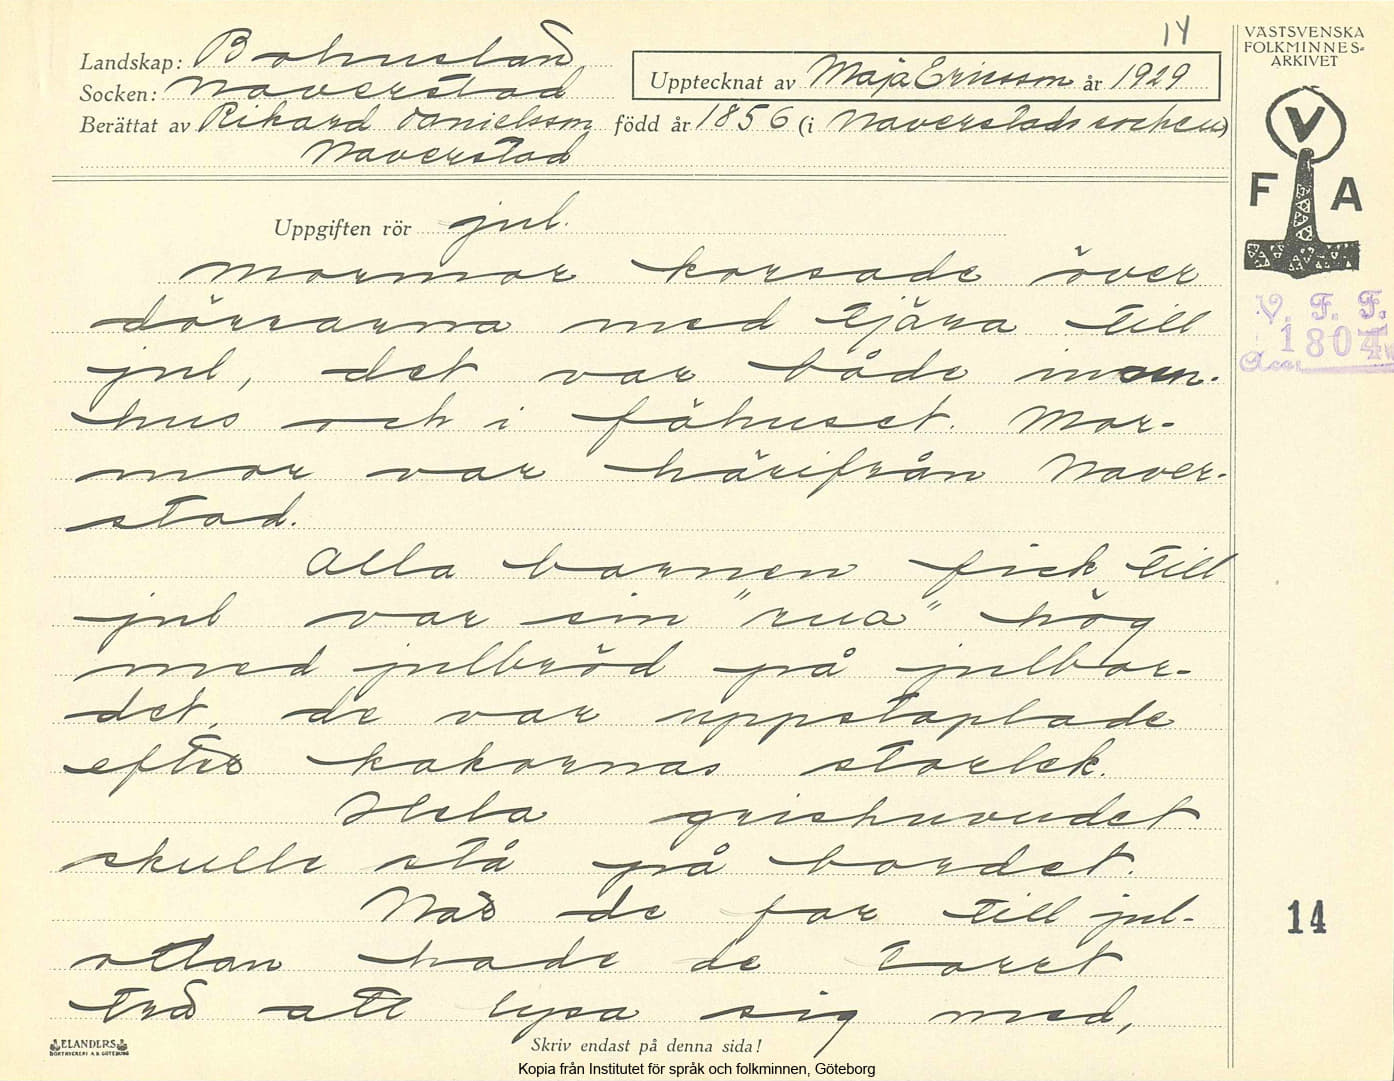 14
Landskap: Bohuslän
Socken: Naverstad
Upptecknat av Maja Ericsson år 1929
Berättat av Rikard Danielsson född år 1856 (i Naverstads socken)
Naverstad
VÄSTSVENSKA
FOLKMINNES-
ARKIVET
V
F A
V. F. F.
1804
Acc.
Uppgiften rör jul.
Mormor korsade över
dörrarna med tjära till
jul, det var både inom-
hus och i fähuset. Mor-
mor var härifrån Naver-
stad.
Alla barnen fick till
jul var sin "rua" hög
med julbröd på julbor-
det, de var uppstaplade
efter kakornas storlek.
Hela grishuvudet
skulle stå på bordet.
När de for till jul-
ottan hade de torrt
trä att lysa sig med,
14
ELANDERS
BOKTRYCKERI A.B. GÖTEBORG
Skriv endast på denna sida!
Kopia från Institutet för språk och folkminnen, Göteborg